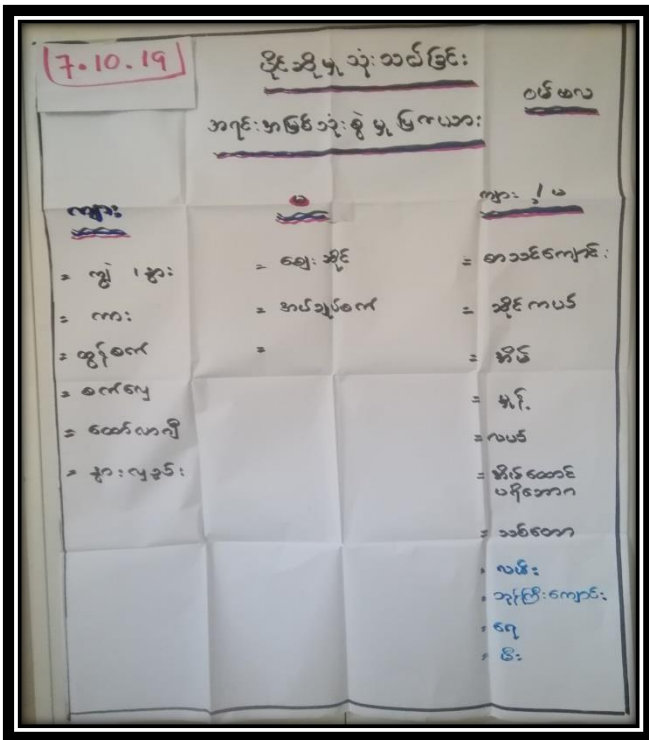 7.10.19
ပိုင်ဆိုမှု သုံးသပ်ခြင်း
ဝမ်ဗလ
အရင်းအမြစ်သုံးစွဲမှု ပြကယား
ကျား
မ
ကျား / မ
= ကျွဲ ၊ နွား
= ကား
= ထွန်စက်
= စက်လှေ
= ထော်လာဂျီ
= နွားလှည်း
= ဈေးဆိုင်
= အပ်ချုပ်စက်
=
= စာသင်ကျောင်း
= ဆိုင်ကယ်
= အိမ်
= မှန်
= လယ်
= အိမ်ထောင်
ပရိဘောဂ
= သစ်တော
လမ်း
ဘုန်းကြီးကျောင်း
ရေ
မီး